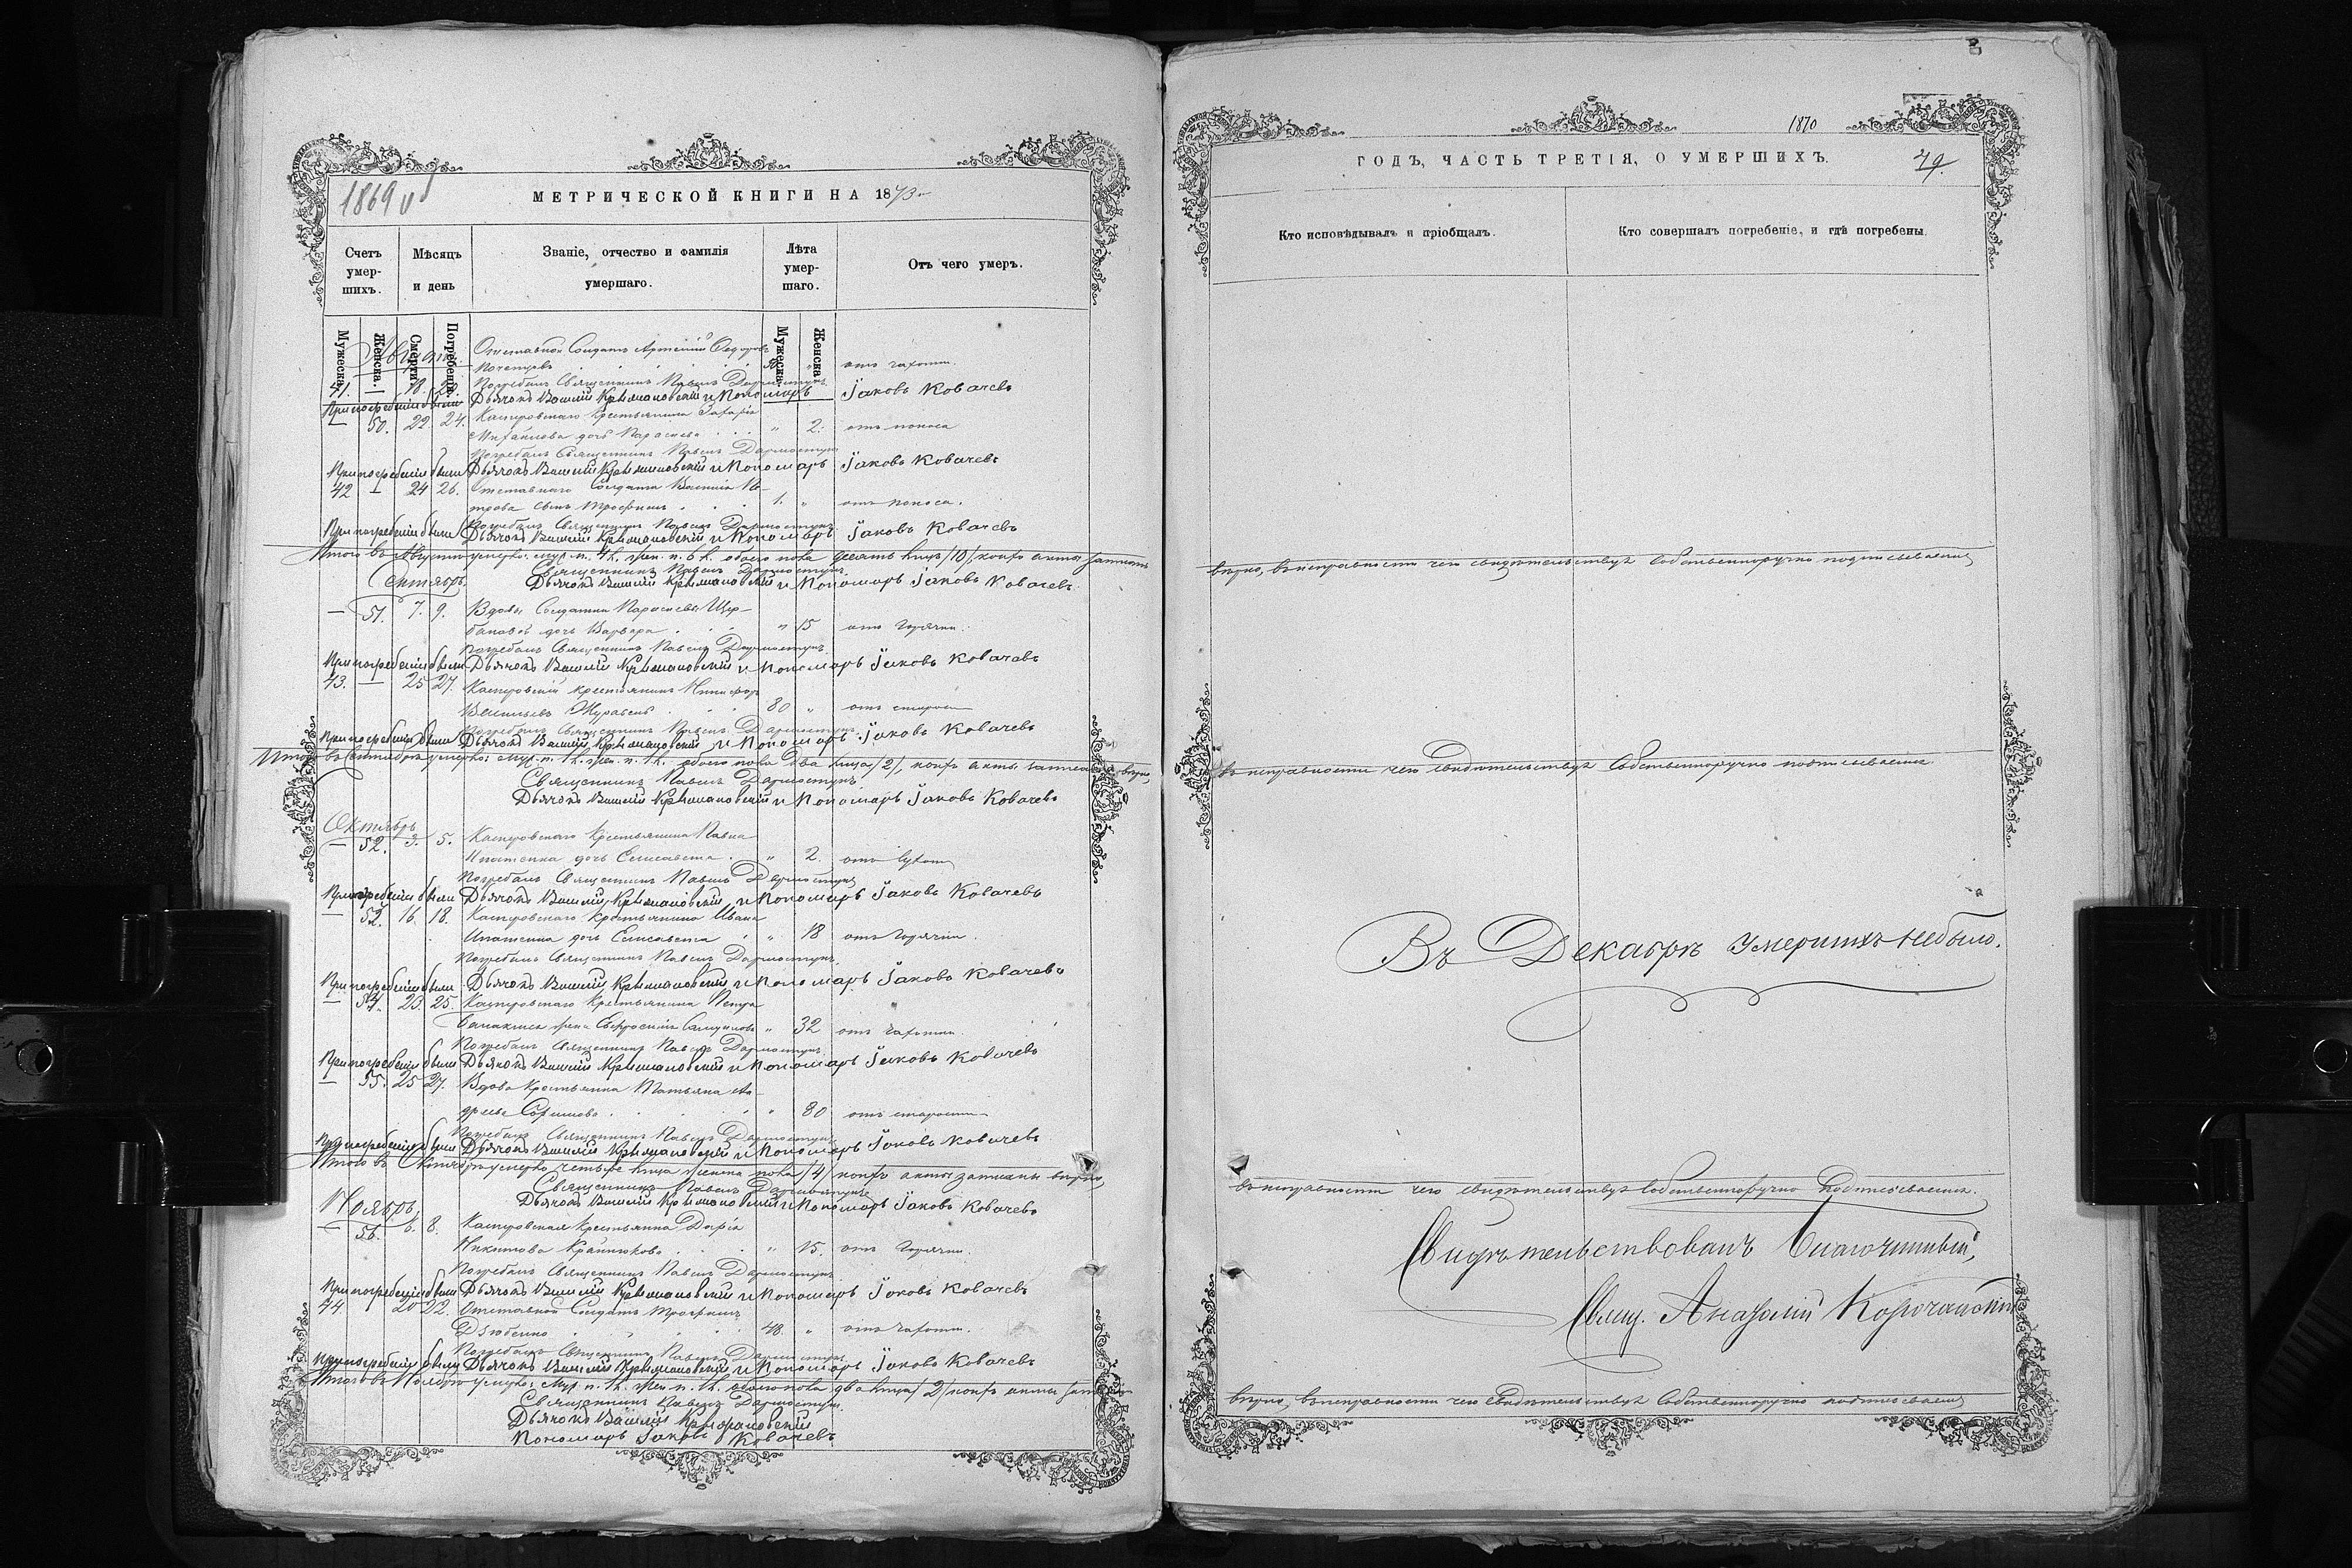 1869 г
МЕТРИЧЕСКОЙ КНИГИ НА 1873
Счетъ умершихъ.
Мѣсяцъ и день
Званіе, отчество и фамилія умершаго.
Лѣта умершаго.
Отъ чего умеръ.
Мужеска.
Женска.
Смерти
Погребенія
Мужеска.
Женска.
Августъ
Отставной Солдатъ Артемій Ѳедоровъ
41. — 18. 20. " отъ чахотки
Погребалъ Священникъ Павелъ
При погребеніи были Дьячокъ Василій Крыжановскій и Пономарь Іаковъ Ковачевъ
— 50. 22. 24. Крестьянина Захарія
Михайлова дочь Параскева " 2. отъ поноса
Погребалъ Священникъ Павелъ
При погребеніи были Дьячокъ Василій Крыжановскій и Пономарь Іаковъ Ковачевъ
42 — 24 26. Отставнаго Солдата Василія Пе-
трова сынъ Трофимъ 1. " отъ поноса.
Погребалъ Священникъ Павелъ
При погребеніи были Дьячокъ Василій Крыжановскій и Пономарь Іаковъ Ковачевъ
Итого въ Августѣ умерло: муж. п. 4 ж. п. 6 обоего пола десять лицъ /10/, коихъ акты записаны
Священникъ Павелъ
Дьячокъ Василій Крыжановскій и Пономарь Іаковъ Ковачевъ
Сентябрь
— 51. 7. 9. Вдовы Солдатки Параскевы Щер-
баковой дочь Варвара " 15 отъ горячки
Погребалъ Священникъ Павелъ
При погребеніи были Дьячокъ Василій Крыжановскій и Пономарь Іаковъ Ковачевъ
43. — 25 27. крестьянинъ Никифоръ
Васильевъ Журавель 80 " отъ старости
Погребалъ Священникъ Павелъ
При погребеніи были Дьячокъ Василій Крыжановскій и Пономарь Іаковъ Ковачевъ
Итого въ Сентябрѣ умерло: муж. п. 1 жен. п. 1 обоего пола два лица /2/, коихъ акты записаны вѣрно,
Священникъ Павелъ
Дьячокъ Василій Крыжановскій и Пономарь Іаковъ Ковачевъ
Октябрь
— 52. 3. 5. Крестьянина Павла
дочь Елисавета " 2. отъ
Погребалъ Священникъ Павелъ
При погребеніи были Дьячокъ Василій Крыжановскій и Пономарь Іаковъ Ковачевъ
— 52. 16. 18. Крестьянина Ивана
дочь Елисавета " 18 отъ горячки.
Погребалъ Священникъ Павелъ
При погребеніи были Дьячокъ Василій Крыжановскій и Пономарь Іаковъ Ковачевъ
— 54. 23. 25. Крестьянина Петра
жена Евфросинія " 32 отъ чахотки.
Погребалъ Священникъ Павелъ
При погребеніи были Дьячокъ Василій Крыжановскій и Пономарь Іаковъ Ковачевъ
— 55. 25 27. Вдова Крестьянка Татьяна Ан-
" 80 отъ старости
Погребалъ Священникъ Павелъ
При погребеніи были Дьячокъ Василій Крыжановскій и Пономарь Іаковъ Ковачевъ
Итого въ Октябрѣ умерло четыре лица женска пола /4/ коихъ акты записаны вѣрно,
Священникъ Павелъ
Дьячокъ Василій Крыжановскій и Пономарь Іаковъ Ковачевъ
Ноябрь
— 56. 6. 8. Крестьянка Дарія
Никитова Крайнюкова " 15. отъ горячки.
Погребалъ Священникъ Павелъ
При погребеніи были Дьячокъ Василій Крыжановскій и Пономарь Іаковъ Ковачевъ
44 20 22. Отставной Солдатъ Трофимъ
Дзюбенко 48. " отъ чахотки.
Погребалъ Священникъ Павелъ
При погребеніи были Дьячокъ Василій Крыжановскій и Пономарь Іаковъ Ковачевъ
Итого въ Ноябрѣ умерло: муж. п. 1 жен. п. 1 обоего пола два лица /2/ коихъ акты
Священникъ Павелъ
Дьячокъ Василій Крыжановскій
Пономарь Іаковъ Ковачевъ
1870
ГОДЪ, ЧАСТЬ ТРЕТІЯ, О УМЕРШИХЪ.
79.
Кто исповѣдывалъ и пріобщалъ.
Кто совершалъ погребеніе, и гдѣ погребены.
вѣрно, въ исправности чего свидѣтельствуя собственноручно подписываемся
въ исправности чего свидѣтельствуя собственноручно подписываемся
Въ Декабрѣ умершихъ небыло.
въ исправности чего свидѣтельствуя собственноручно подписываемся.
Свидѣтельствовалъ Благочинный,
Свящ. Анатолій
вѣрно, въ исправности чего свидѣтельствуя собственноручно подписываемся